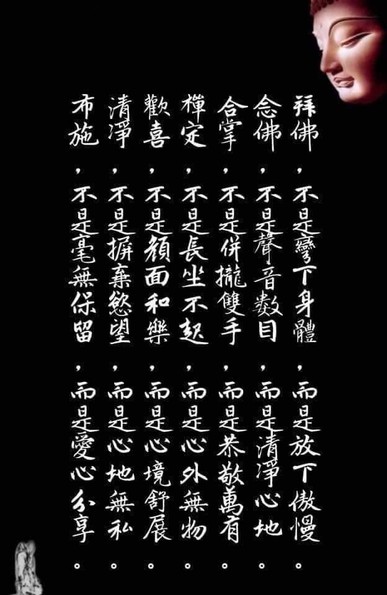 拜佛，不是彎下身體，而是放下傲慢。
念佛，不是聲音數目，而是清淨心地。
合掌，不是併攏雙手，而是恭敬萬有。
禪定，不是長坐不起，而是心外無物。
歡喜，不是顏面和樂，而是心境舒展。
清淨，不是摒棄慾望，而是心地無私。
布施，不是毫無保留，而是愛心分享。